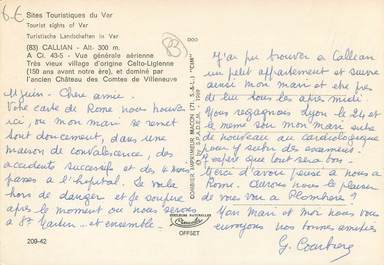 6-6
Sites Touristiques du Var
Tourist sights of Var
Turistische Landschaften in Var
(83) CALLIAN - Alt. 300 m.
A Ci. 43-5 - Vue générale aérienne
Très vieux village d'origine Celto-Ligienne
(150 ans avant notre ère), et dominé par
l'ancien Château des Comtes de Villeneuve
juin - Chere amie.
Votre carte de Rome nous
ici, ou mon mari se remet
tout doucement, dans une
maison de convalescence, des
accidents successifs et des 4 mois
passés a l'hopital. Le voila
hors de danger et je soupire
après le moment ou nous serons
a St Martin - et ensemble.
209-42
COMBIER IMPRIMEUR MACON (71, S.-&-L.) "CIM"
© by S.P.A.D.E.M. 1969
COULEURS NATURELLES
OFFSET
J'ai pu trouver a Callian
un petit appartement et suivre
ainsi mon mari et etre près
de lui tous les apres midi.
Nous regagnons Lyon le 24 et
le meme soir mon mari entre
de nouveau au cardiologique
pour y subir des examens.
J'espere que tout sera bon.
Merci d'avoir pensé a nous a
Rome. Aurons nous le plaisir
de vous voir a Plombière ?
Mon Mari et moi nous vous
envoyons nos bonnes amitiés
G.